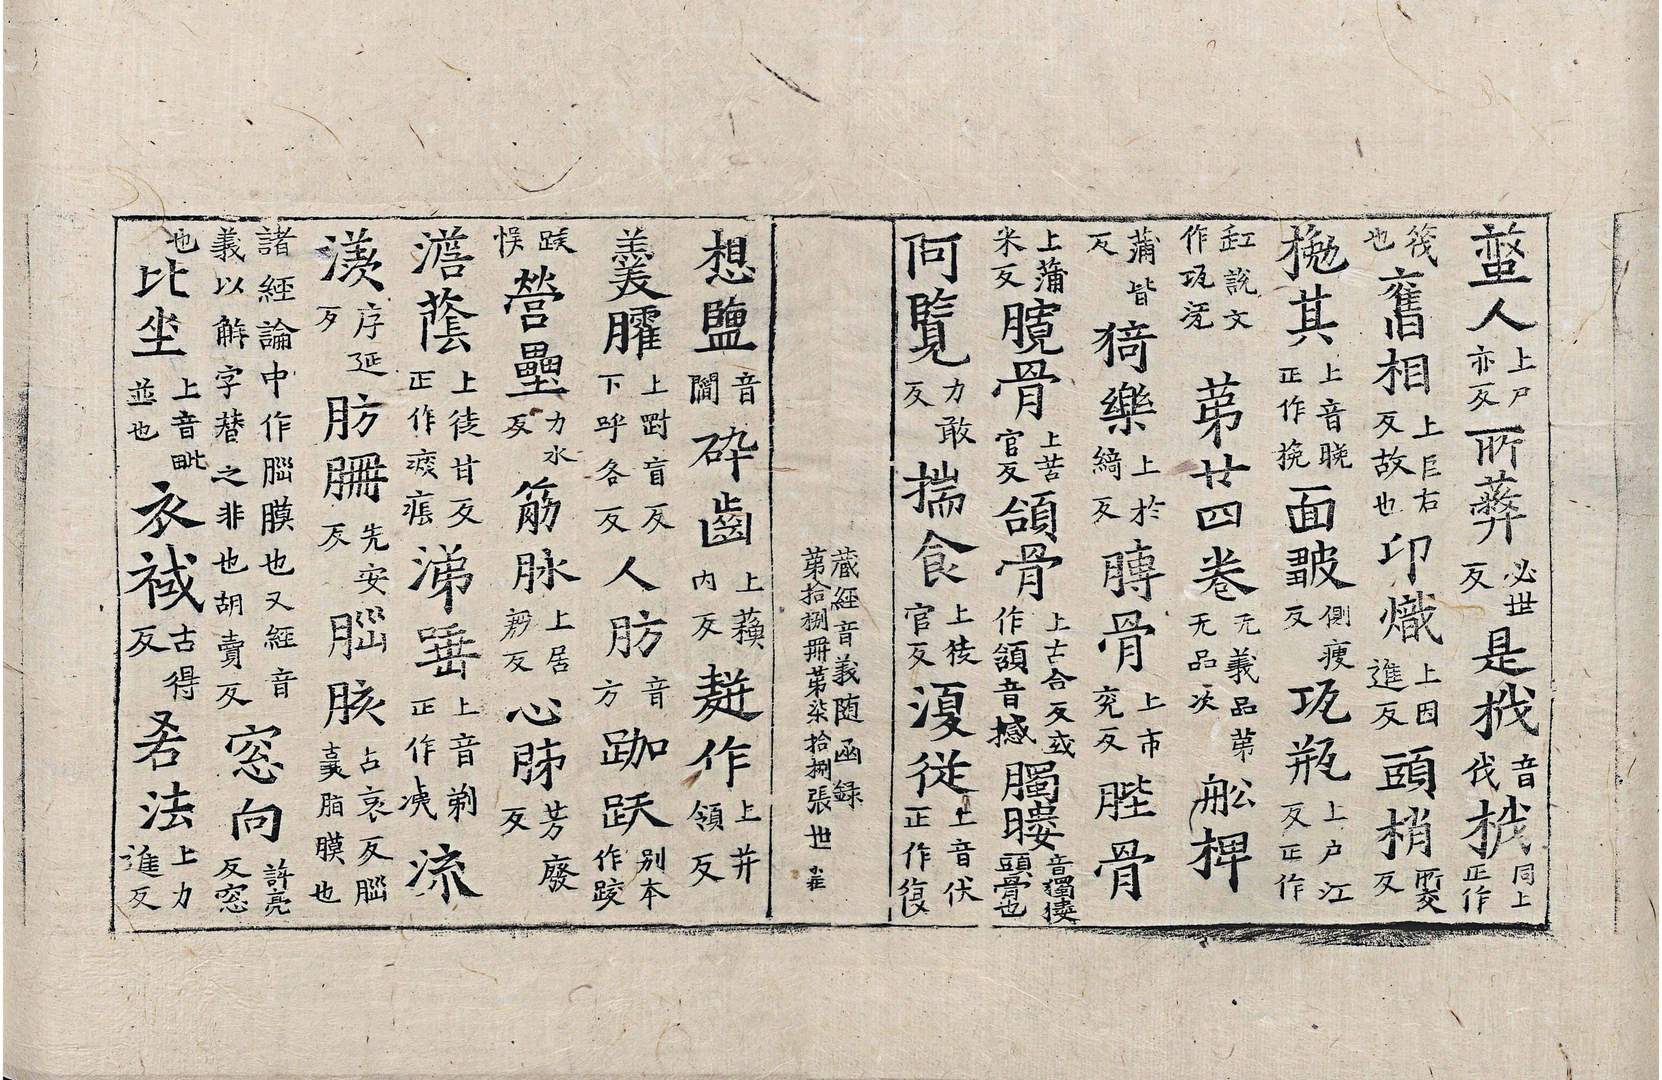 蝅人上戸亦反所蕣必世反是栰音伐㭜同上正作
筏也舊相上巨右反故也印熾上因進反頭梢所交反
㧥其上音晚正作挽面皺側瘦反㼚瓶上户江反正作
缸說文作㼚瓨第廿四卷元義品第无品次舩椑
蒲皆反猗樂上於綺反膞骨上市兖反䏶骨
上蒲米反髖骨上苦官反頜骨上古合反或作頷音撼髑髏音獨摟頭骨也
何覽力敢反揣食上徒官反復從上音伏正作復
藏經音義随函録
第拾捌冊第柒拾捌張世
想鹽音閻碎齒上蘓内反䢍作上并領反
羹臛上尉盲反下呼各反人肪音方跏趺別本作跤
趺悮營壘力水反筋脉上居䒱反心肺芳廢反
澹蔭上徒甘反正作痰癊涕唾上音剃正作洟流
㳄序延反肪𦙱先安反腦胲古哀反腦𡙡脂膜也
諸經論中作腦膜也又經音義以解字替之非也胡賣反窓向許亮反窓
也比坐上音毗並也衣裓古得反㖁法上力進反